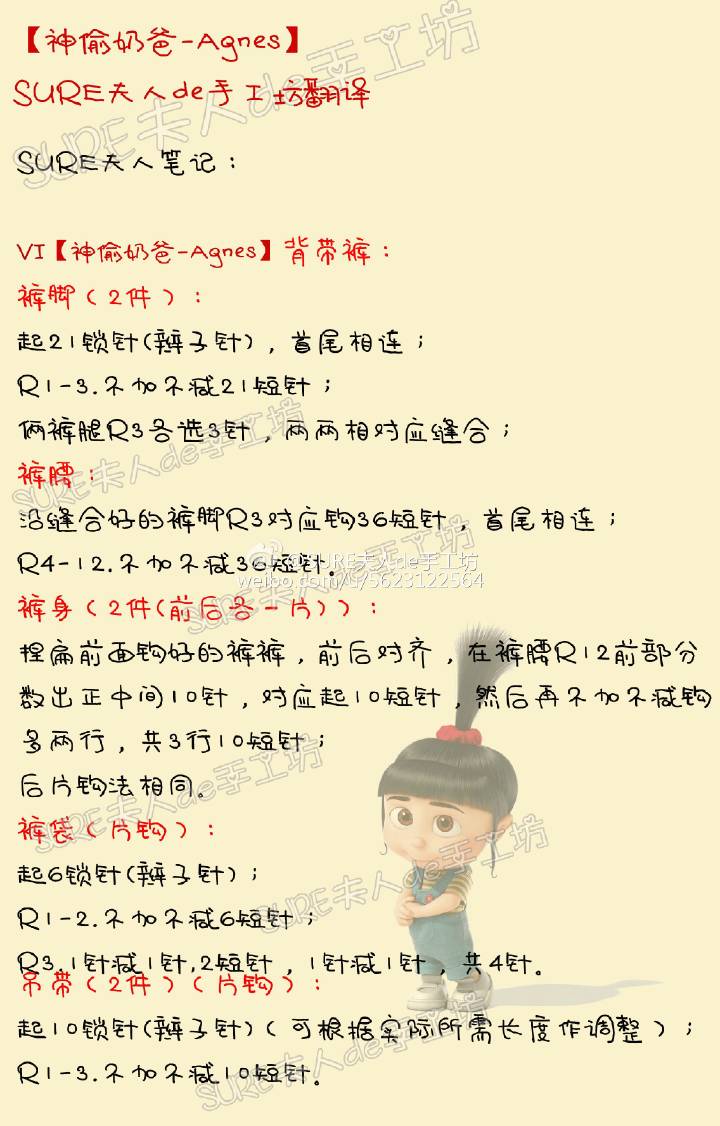 【神偷奶爸-Agnes】
SURE夫人de手工坊翻译
SURE夫人笔记：
VI【神偷奶爸-Agnes】背带裤：
裤脚（2件）：
起21锁针(辫子针)，首尾相连；
R1-3.不加不减21短针；
俩裤腿R3各选3针，两两相对应缝合；
裤腰：
沿缝合好的裤脚R3对应钩36短针，首尾相连；
R4-12.不加不减36短针。
@SURE夫人de手工坊
weibo.com/u/5623122564
裤身（2件(前后各一片)）：
捏扁前面钩好的裤裤，前后对齐，在裤腰R12前部分
数出正中间10针，对应起10短针，然后再不加不减钩
多两行，共3行10短针；
后片钩法相同。
裤袋（片钩）：
起6锁针(辫子针)；
R1-2.不加不减6短针；
R3.1针减1针,2短针，1针减1针，共4针。
吊带（2件）（片钩）：
起10锁针(辫子针)（可根据实际所需长度作调整）；
R1-3.不加不减10短针。
SURE夫人de手工坊
SURE夫人de手工坊
SURE夫人de手工坊
SURE夫人de手工坊
SURE夫人de手工坊
SURE夫人de手工坊